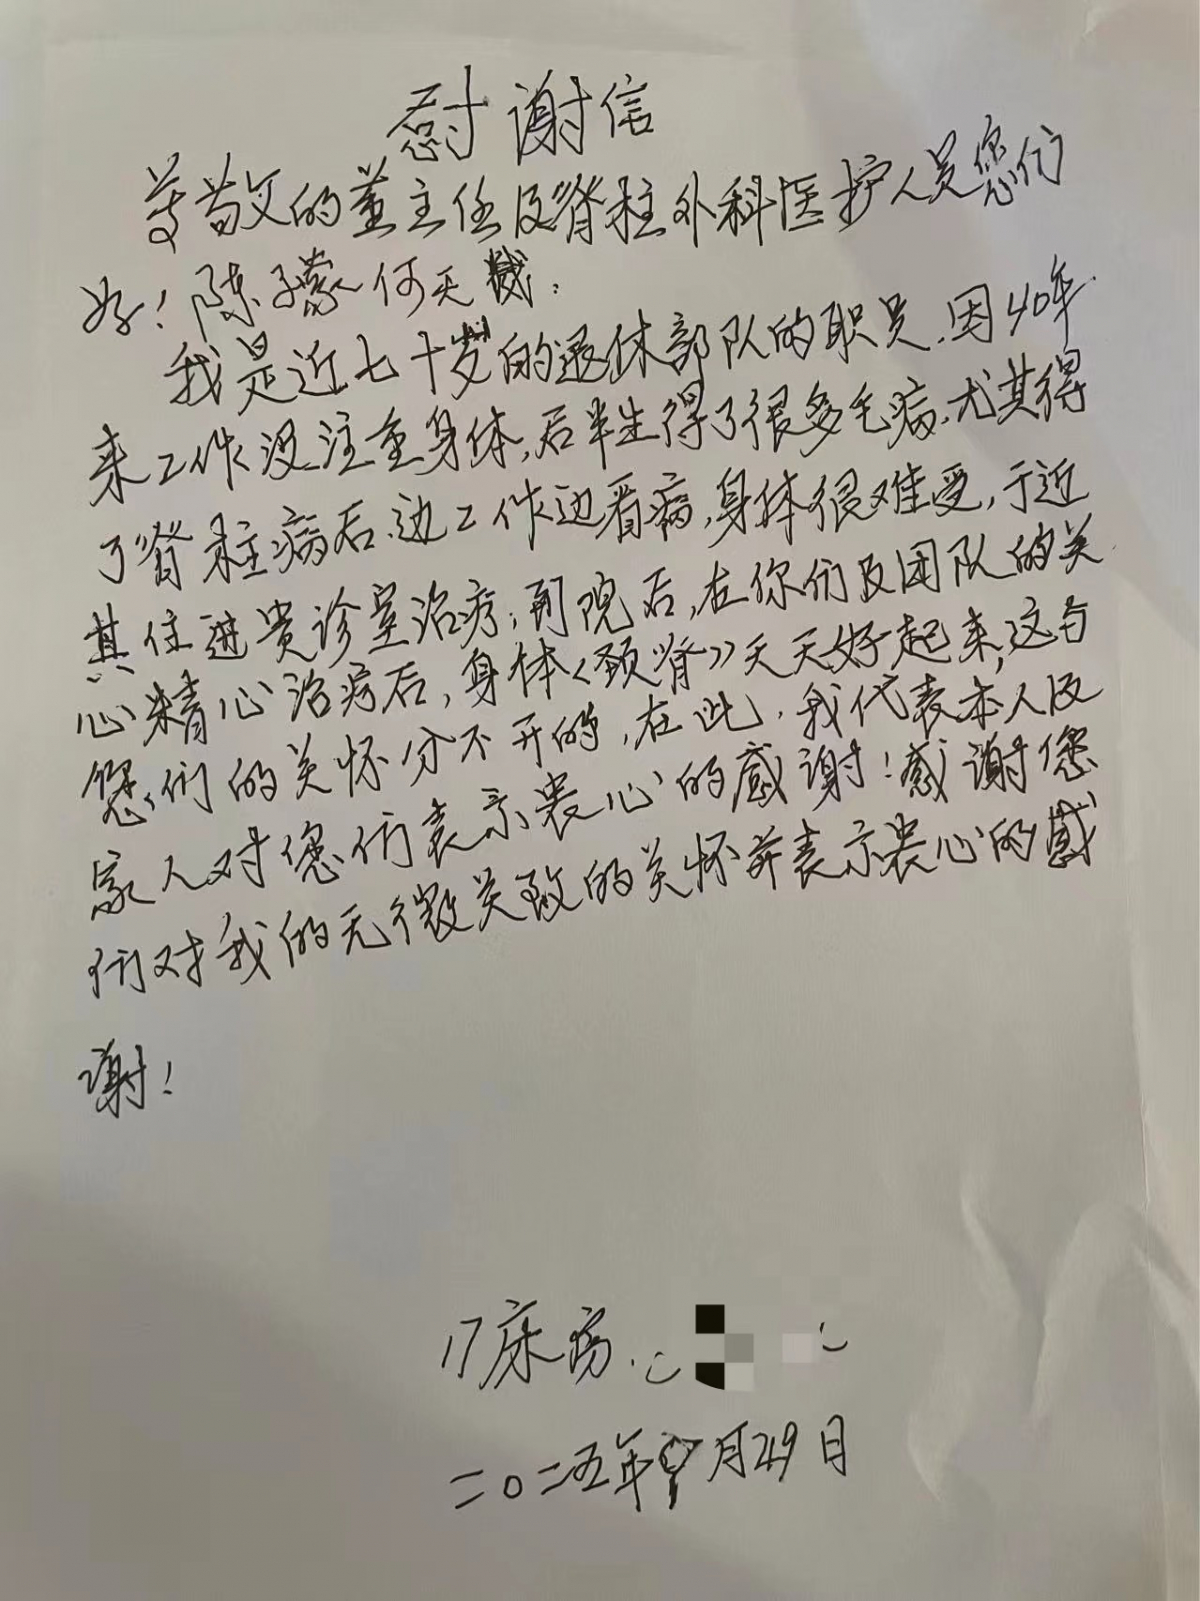 慰谢信
尊敬的董主任及脊柱外科医护人员您们
好！陈子蒙何天
我是近七十岁的退休部队的职员.因40年
来工作没注重身体,后半生得了很多毛病.尤其得
了脊柱病后.边工作边看病,身体很难受,于近
其住进贵诊室治疗;到院后,在你们及团队的关
心精心治疗后,身体《颈脊》天天好起来,这与
您们的关怀分不开的,在此,我代表本人及
家人对您们表示衷心的感谢!感谢您
们对我的无微关致的关怀并表示衷心的感
谢!
17床病.
二〇二五年9月29日